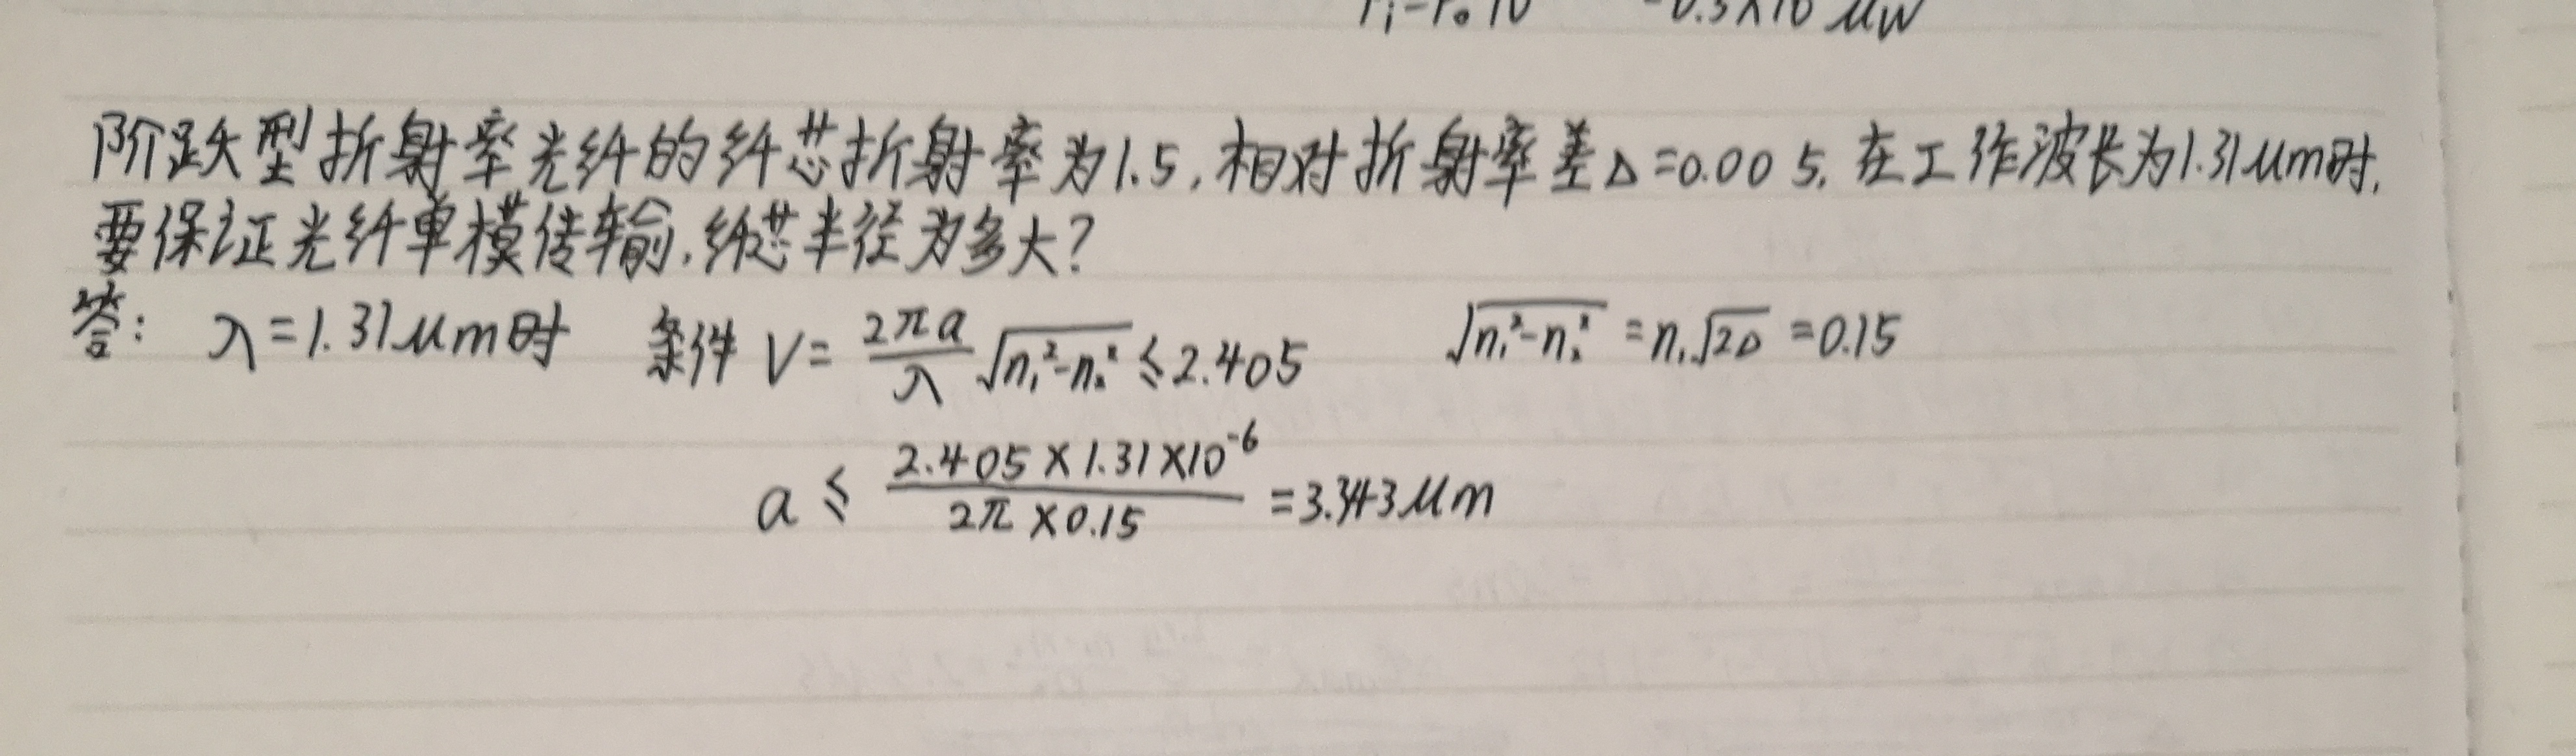 阶跃型折射率光纤的纤芯折射率为1.5,相对折射率差Δ=0.005,在工作波长为1.31μm时,
要保证光纤单模传输,纤芯半径为多大?
答: λ=1.31μm时 条件 V=2πa/λ √(n₁²-n₂²) ≤2.405 √(n₁²-n₂²) =n₁√(2Δ) =0.15
a ≤ (2.405×1.31×10⁻⁶)/(2π×0.15) =3.343μm